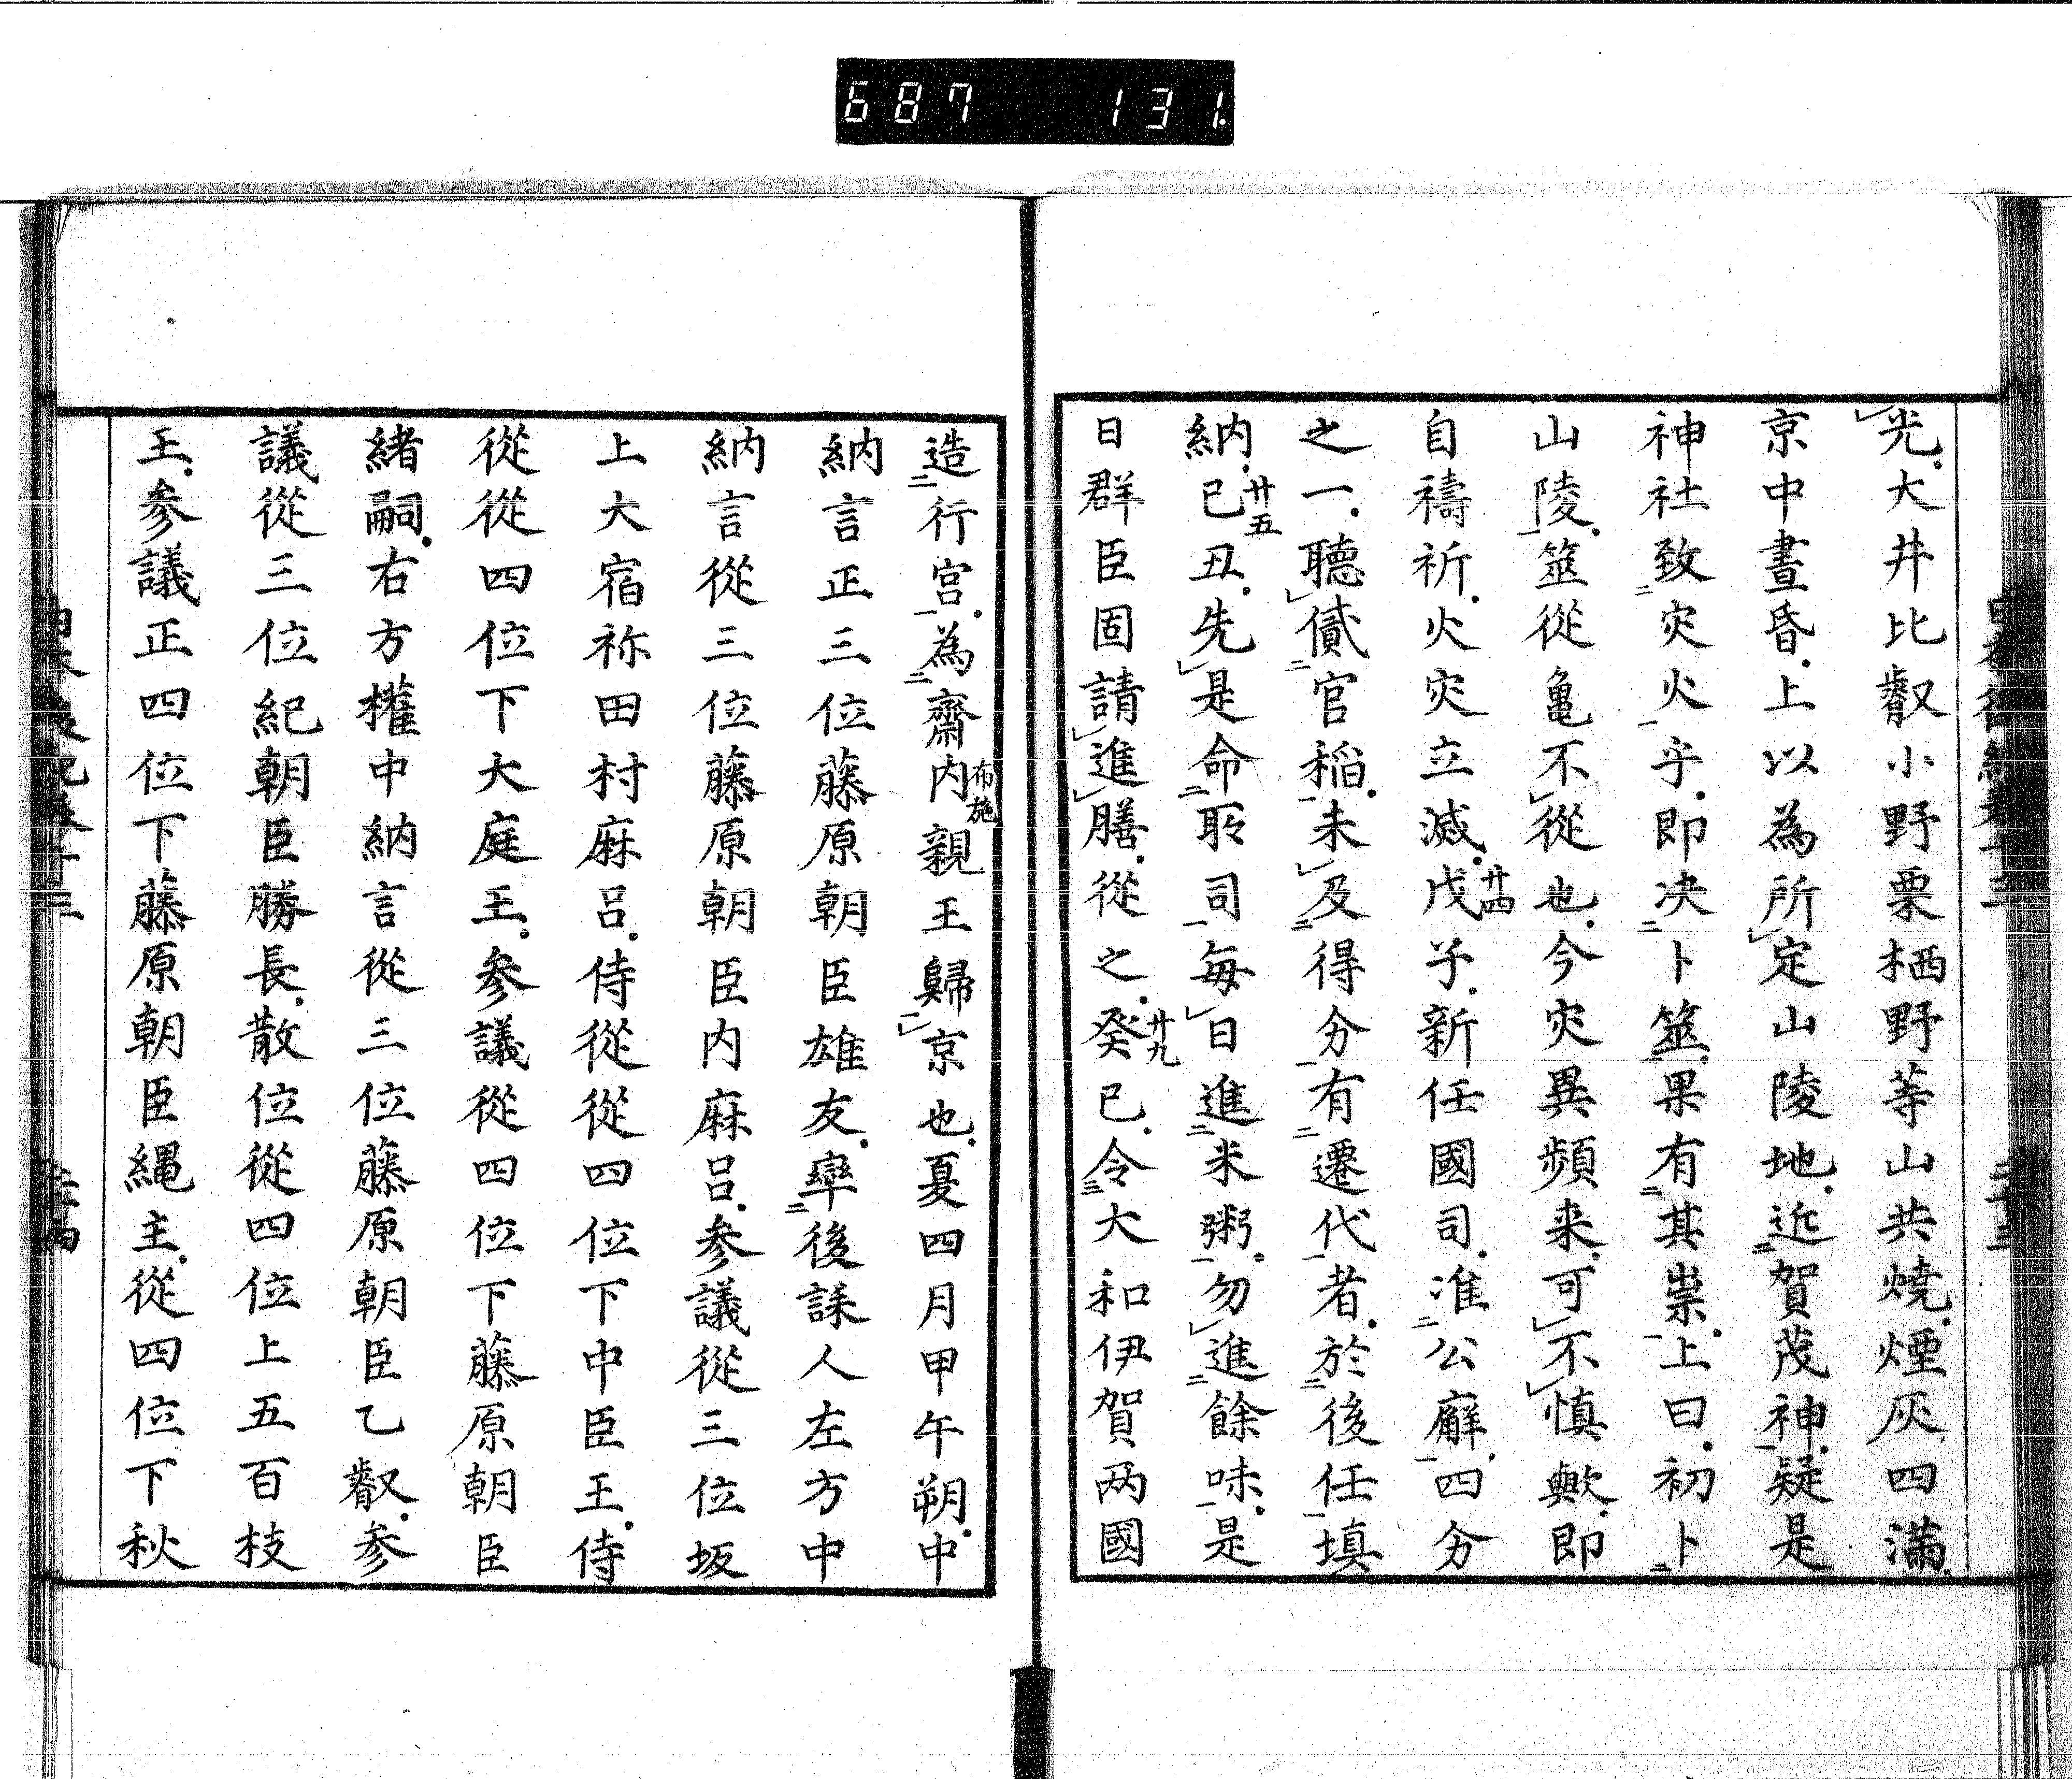 687 131.
光大井比叡小野栗栖野等山共燒煙灰四滿
京中晝昏上以為所定山陵地近賀茂神疑是
神社致災火乎即决卜筮果有其祟上曰初卜
山陵筮從亀不從也今災異頻来可不慎歟即
自禱祈火災立滅戊廿四子新任國司准公廨四分
之一聽貸官稲未及得分有遷代者於後任填
納已廿五丑先是命所司每日進米粥勿進餘味是
日群臣固請進膳從之癸廿九已令大和伊賀两國
造行宮為齋内布施親王歸京也夏四月甲午朔中
納言正三位藤原朝臣雄友率後誄人左方中
納言從三位藤原朝臣内麻呂参議從三位坂
上大宿祢田村麻呂侍從從四位下中臣王侍
從從四位下大庭王参議從四位下藤原朝臣
緒嗣右方權中納言從三位藤原朝臣乙叡参
議從三位紀朝臣勝長散位從四位上五百枝
王参議正四位下藤原朝臣縄主從四位下秋